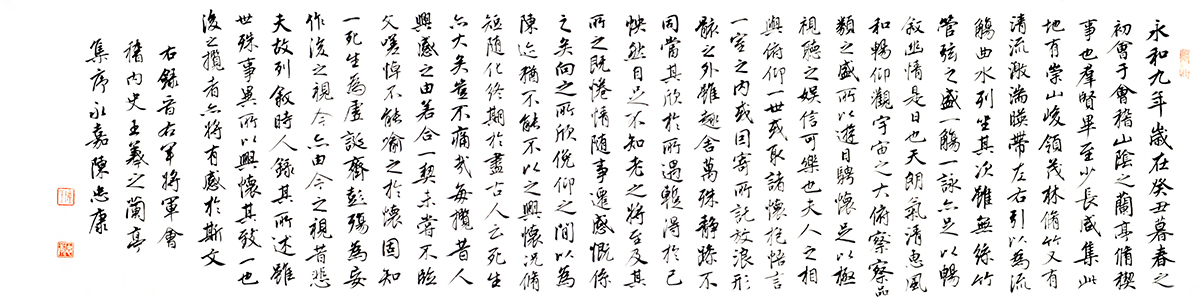 永和九年歲在癸丑暮春之
初會于會稽山陰之蘭亭脩稧
事也羣賢畢至少長咸集此
地有崇山峻領茂林脩竹又有
清流激湍暎帶左右引以為流
觴曲水列坐其次雖無絲竹
管弦之盛一觴一詠亦足以暢
敘幽情是日也天朗氣清惠風
和暢仰觀宇宙之大俯察察品
類之盛所以遊目騁懷足以極
視聽之娛信可樂也夫人之相
與俯仰一世或取諸懷抱悟言
一室之內或因寄所託放浪形
骸之外雖趣舍萬殊靜躁不
同當其欣於所遇蹔得於己
怏然自足不知老之將至及其
所之既惓情隨事遷感慨係
之矣向之所欣俛仰之間以為
陳迹猶不能不以之興懷況脩
短隨化終期於盡古人云死生
亦大矣豈不痛哉每攬昔人
興感之由若合一契未嘗不臨
文嗟悼不能喻之於懷固知
一死生為虛誕齊彭殤為妄
作後之視今亦由今之視昔悲
夫故列敘時人錄其所述雖
世殊事異所以興懷其致一也
後之攬者亦將有感於斯文
右錄晉右軍將軍會
稽內史王羲之蘭亭
集序永嘉陳忠康